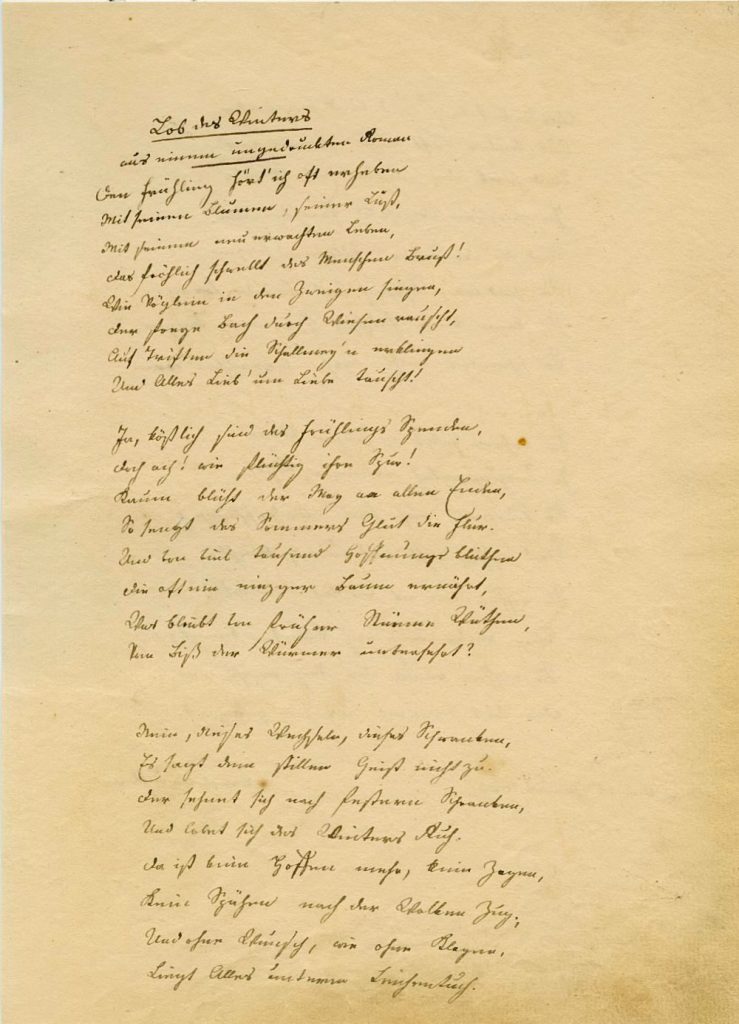 Lob des Winters
aus einem ungedruckten Roman
Den Frühling hört' ich oft erheben
Mit seinen Blumen, seiner Lust,
Mit seinem neu erwachten Leben,
Das fröhlich schwellt des Menschen Brust!
Wie Vöglein in den Zweigen singen,
Der Bach durch Wiesen rauscht,
Auf Triften die Schallmey'n erklingen
Und Alles Lieb' um Liebe tauscht!
Ja, köstlich sind des Frühlings Spenden,
Doch ach! wie flüchtig ihre Spur!
Kaum blüht der May an allen Enden,
So sengt des Sommers Glut die Flur.
Und von viel tausend Hoffnungsblüthen
Die oft ein einz'ger Baum ernährt,
Was bleibt von früher Stürme Wüthen,
Vom Biß der Würmer unversehrt?
Nein, dieses Wechseln, dieses Schwanken,
Es sagt dem stillen Geist nicht zu.
Der sehnet sich nach festern Schranken,
Und lobet sich des Winters Ruh.
Da ist kein Hoffen mehr, kein Zagen,
Kein Spähen nach der Wolken Zug,
Und ohne Wunsch, wie ohne Klagen,
Liegt Alles unterm Leichentuch.